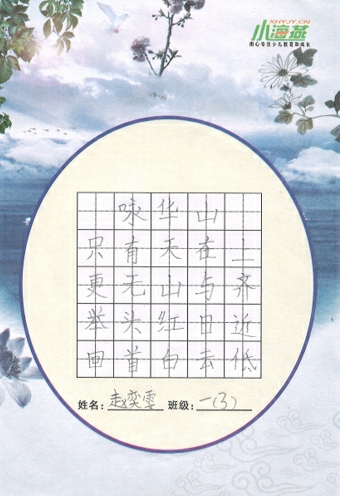 XHYJY.CN
小海燕
用心专注少儿教育和成长
咏华山
只有天在上
更无山与齐
举头红日近
回首白云低
姓名：赵奕雯 班级：一(3)